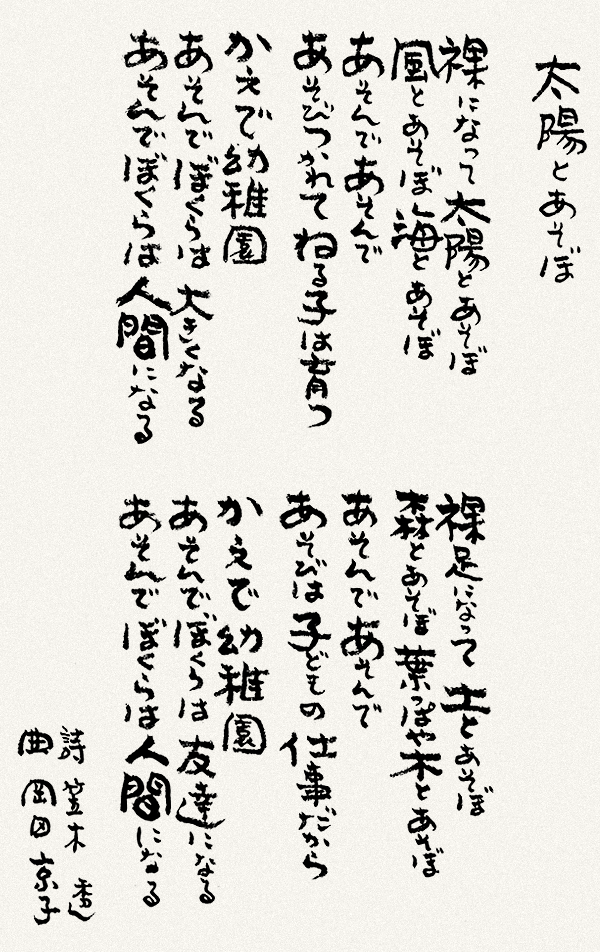 太陽とあそぼ
裸になって太陽とあそぼ
風とあそぼ海とあそぼ
あそんであそんで
あそびつかれてねる子は育つ
かえで幼稚園
あそんでぼくらは大きくなる
あそんでぼくらは人間になる
裸足になって土とあそぼ
森とあそぼ葉っぱや木とあそぼ
あそんであそんで
あそびは子どもの仕事だから
かえで幼稚園
あそんでぼくらは友達になる
あそんでぼくらは人間になる
詩 笠木 透
曲 岡田京子